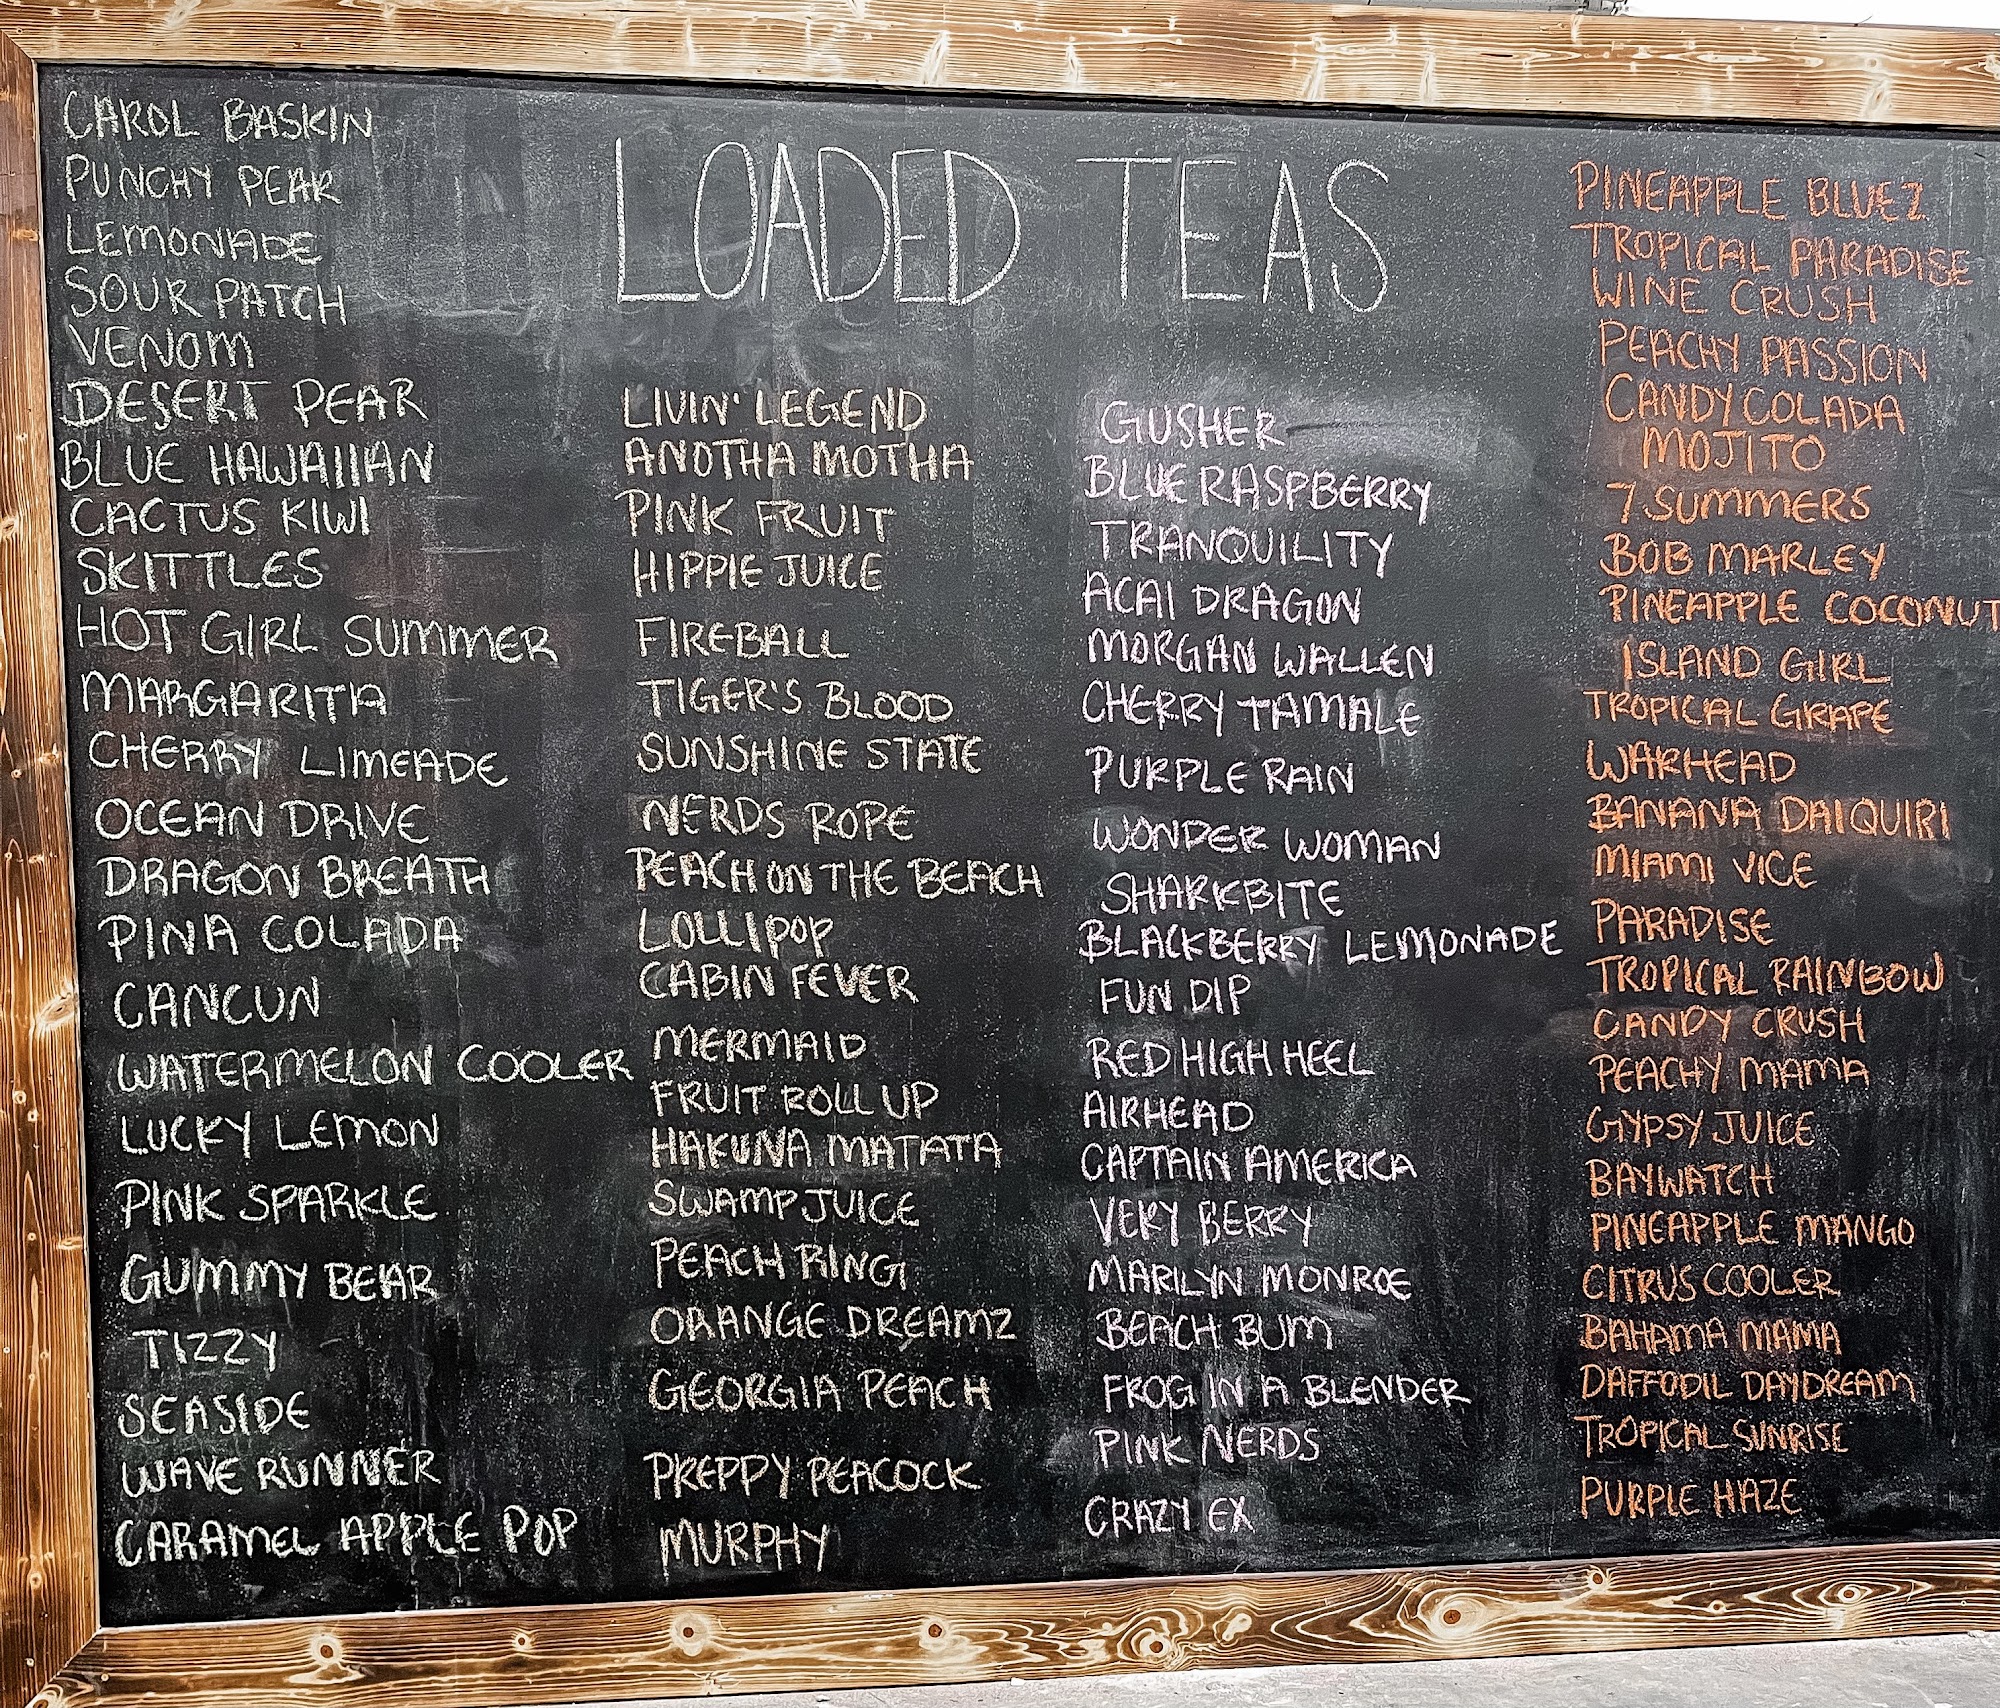 LOADED TEAS
CAROL BASKIN
PUNCHY PEAR
LEMONADE
SOUR PATCH
VENOM
DESERT PEAR
BLUE HAWAIIAN
CACTUS KIWI
SKITTLES
HOT GIRL SUMMER
MARGARITA
CHERRY LIMEADE
OCEAN DRIVE
DRAGON BREATH
PINA COLADA
CANCUN
WATERMELON COOLER
LUCKY LEMON
PINK SPARKLE
GUMMY BEAR
TIZZY
SEASIDE
WAVE RUNNER
CARAMEL APPLE POP
LIVIN' LEGEND
ANOTHA MOTHA
PINK FRUIT
HIPPIE JUICE
FIREBALL
TIGER'S BLOOD
SUNSHINE STATE
NERDS ROPE
PEACH ON THE BEACH
LOLLIPOP
CABIN FEVER
MERMAID
FRUIT ROLL UP
HAKUNA MATATA
SWAMP JUICE
PEACH RING
ORANGE DREAMZ
GEORGIA PEACH
PREPPY PEACOCK
MURPHY
GUSHER
BLUE RASPBERRY
TRANQUILITY
ACAI DRAGON
MORGAN WALLEN
CHERRY TAMALE
PURPLE RAIN
WONDER WOMAN
SHARKBITE
BLACKBERRY LEMONADE
FUN DIP
RED HIGH HEEL
AIRHEAD
CAPTAIN AMERICA
VERY BERRY
MARILYN MONROE
BEACH BUM
FROG IN A BLENDER
PINK NERDS
CRAZY EX
PINEAPPLE BLUEZ
TROPICAL PARADISE
WINE CRUSH
PEACHY PASSION
CANDY COLADA
MOJITO
7 SUMMERS
BOB MARLEY
PINEAPPLE COCONUT
ISLAND GIRL
TROPICAL GRAPE
WARHEAD
BANANA DAIQUIRI
MIAMI VICE
PARADISE
TROPICAL RAINBOW
CANDY CRUSH
PEACHY MAMA
GYPSY JUICE
BAYWATCH
PINEAPPLE MANGO
CITRUS COOLER
BAHAMA MAMA
DAFFODIL DAYDREAM
TROPICAL SUNRISE
PURPLE HAZE